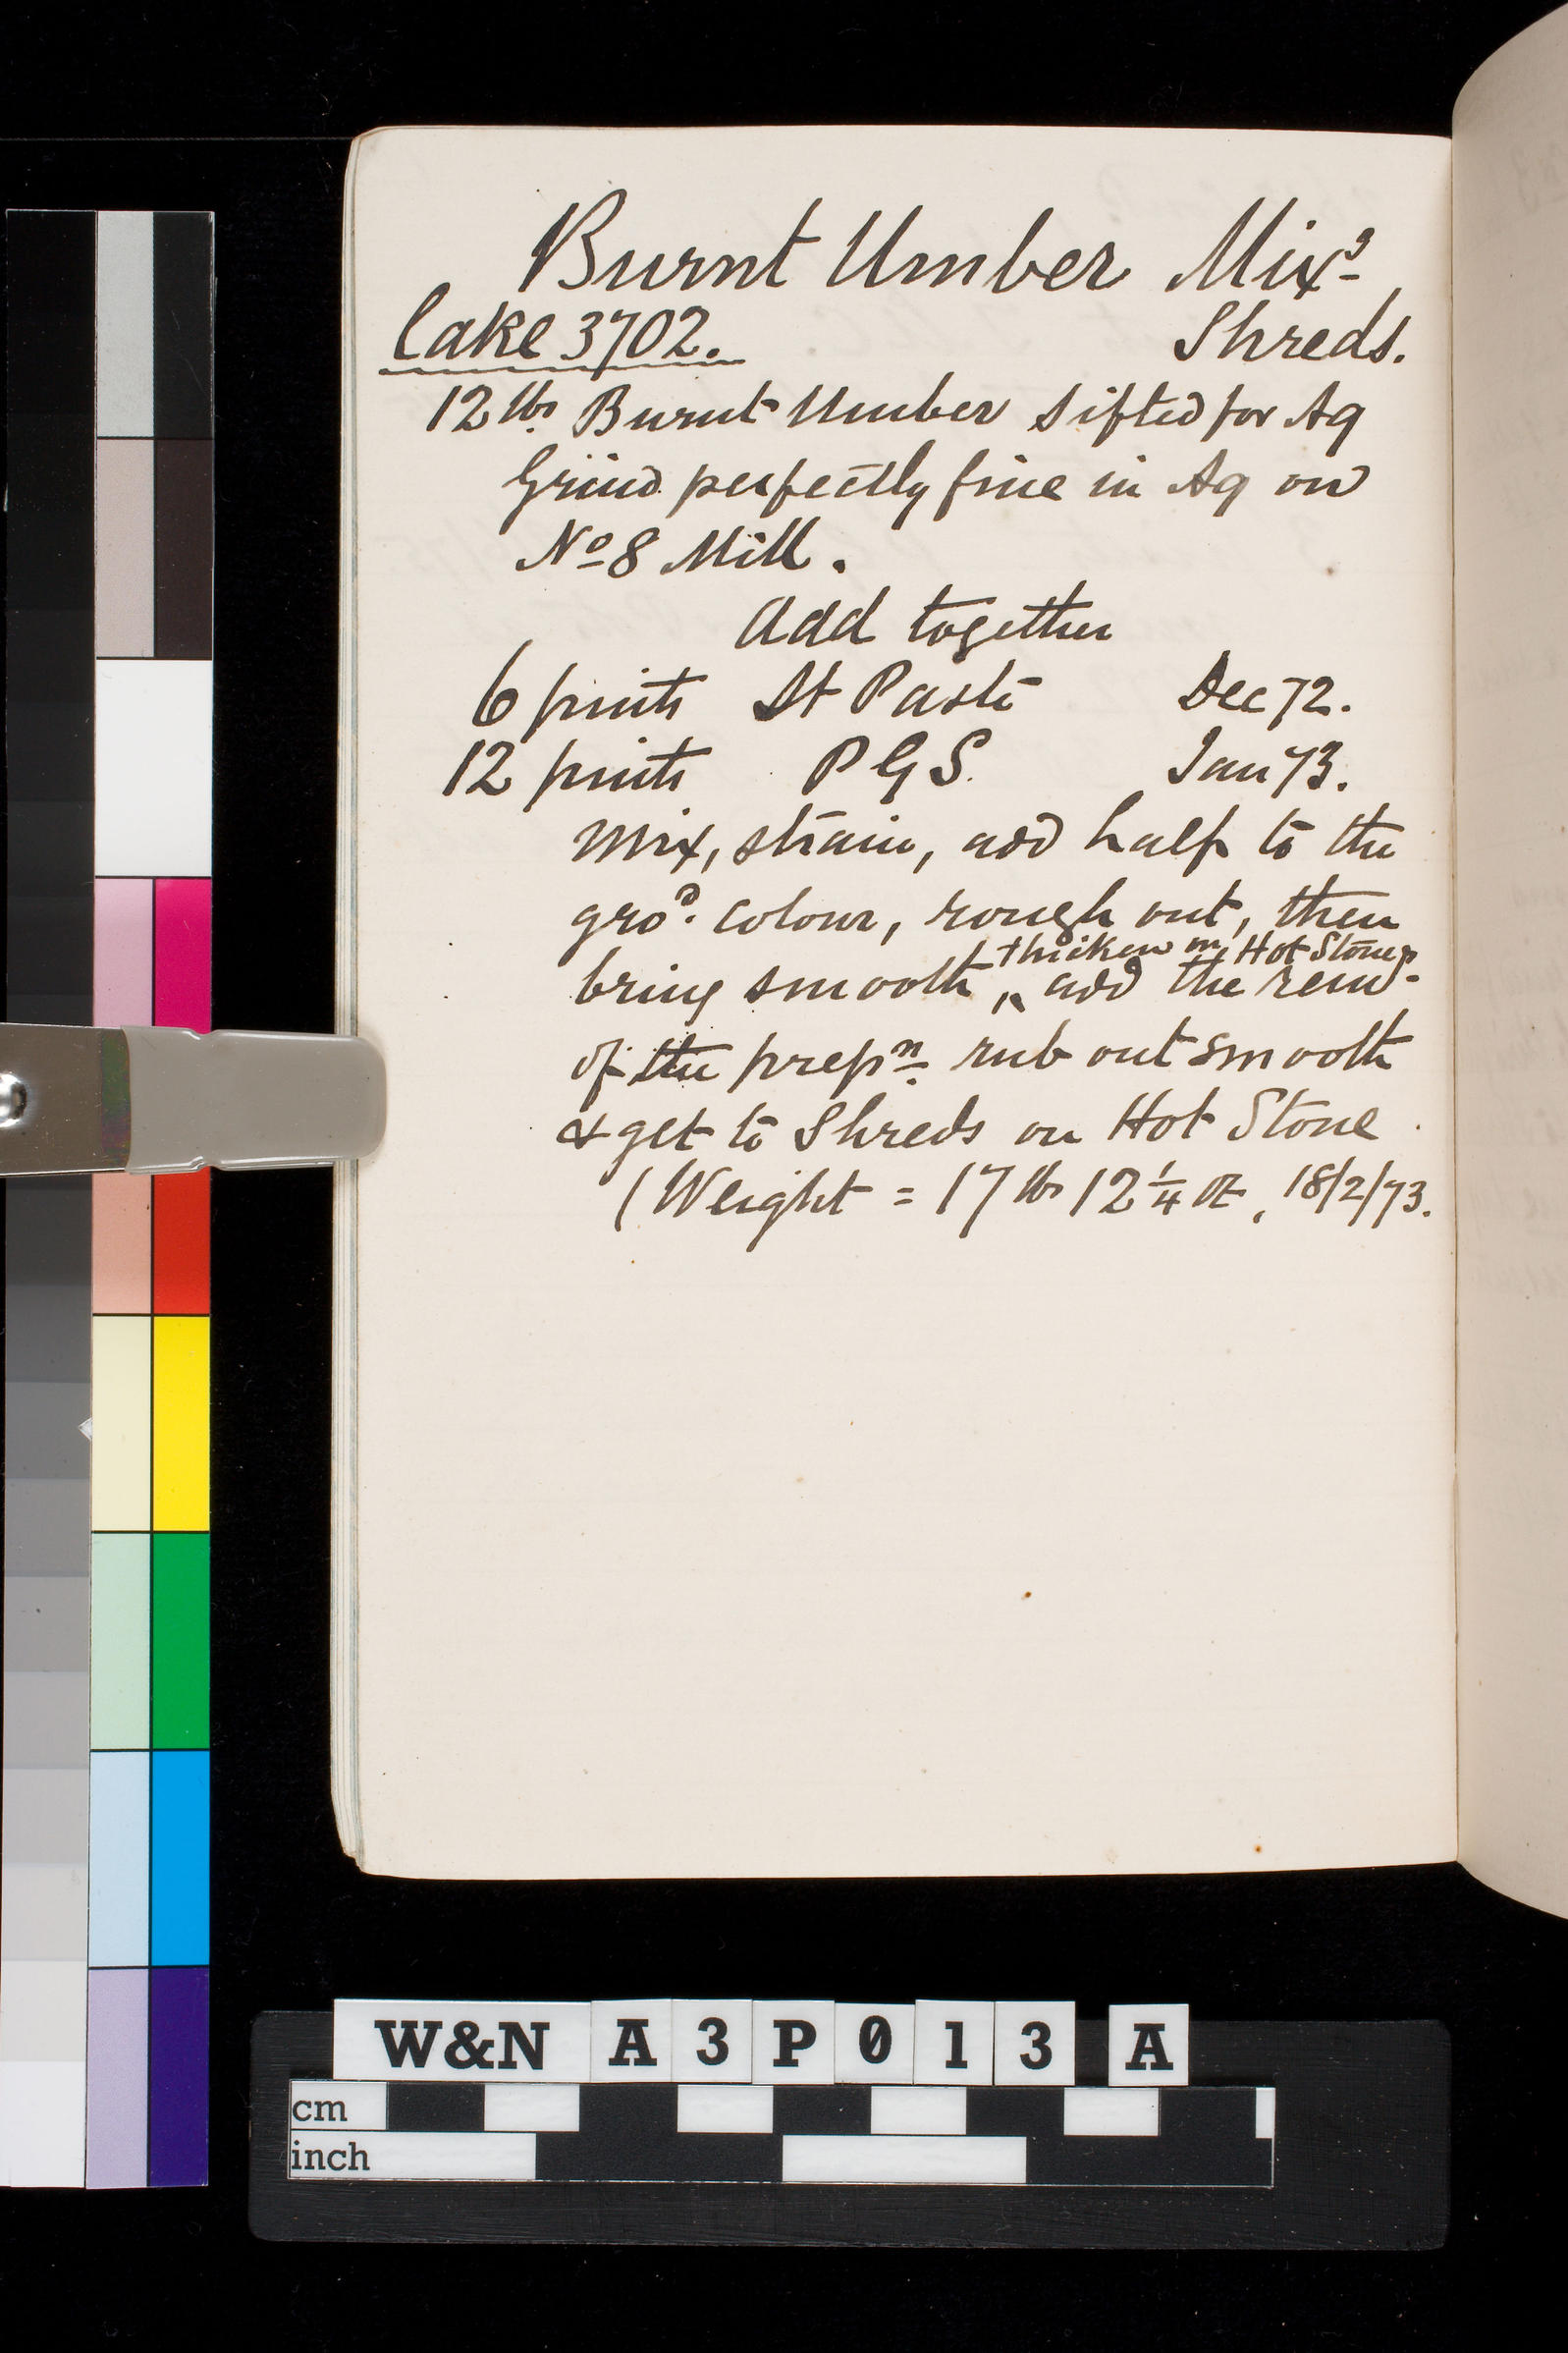 Burnt Umber Mixg
Cake 3702. Shreds.
12 lbs. Burnt Umber sifted for Aq
Grind perfectly fine in Aq on
No 8 Mill.
Add together
6 pints St Paste Dec 72.
12 pints P G S. Jan 73.
mix, strain, add half to the
grod. colour, rough out, then
thicken on Hot Stone
bring smooth, add the remd.
of the prepn. rub out smooth
& get to Shreds on Hot Stone
(Weight = 17 lbs 12 1/4 oz, 18/2/73.
W&N A3P013 A
cm
inch